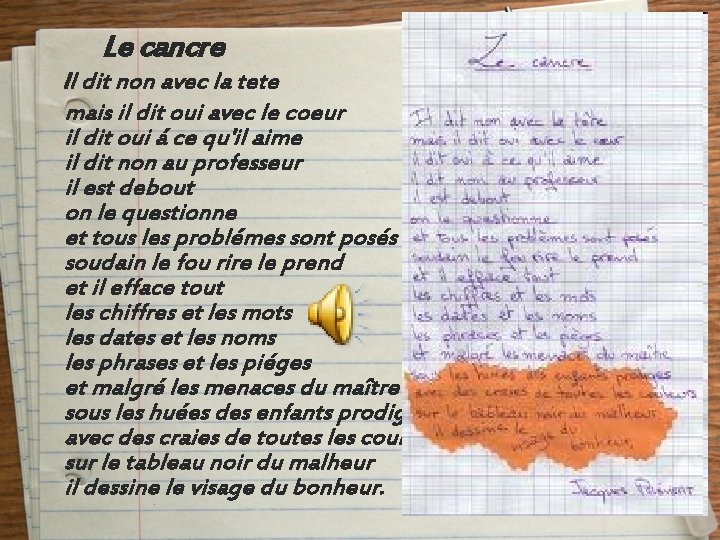 Le cancre
Il dit non avec la tete
mais il dit oui avec le coeur
il dit oui á ce qu'il aime
il dit non au professeur
il est debout
on le questionne
et tous les problémes sont posés
soudain le fou rire le prend
et il efface tout
les chiffres et les mots
les dates et les noms
les phrases et les piéges
et malgré les menaces du maître
sous les huées des enfants prodig
avec des craies de toutes les coul
sur le tableau noir du malheur
il dessine le visage du bonheur.
Le cancre
Il dit non avec la tête
mais il dit oui avec le cœur
il dit oui à ce qu'il aime
il dit non au professeur
il est debout
on le questionne
et tous les problèmes sont posés
soudain le fou rire le prend
et il efface tout
les chiffres et les mots
les dates et les noms
les phrases et les pièges
et malgré les menaces du maître
sous les huées des enfants prodiges
avec des craies de toutes les couleurs
sur le tableau noir du malheur
il dessine le
visage du
bonheur.
Jacques Prévert